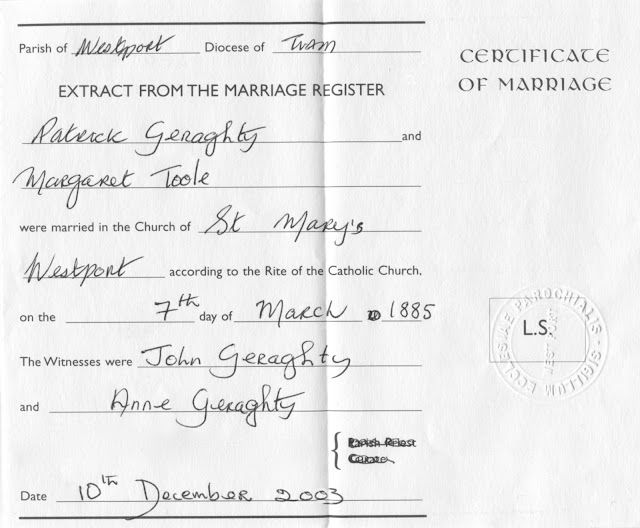 Parish of Westport Diocese of Tuam
CERTIFICATE
OF MARRIAGE
EXTRACT FROM THE MARRIAGE REGISTER
Patrick Geraghty and
Margaret Toole
were married in the Church of St Mary's
Westport according to the Rite of the Catholic Church,
on the 7th day of March 1885
The Witnesses were John Geraghty
and Anne Geraghty
L.S.
SIGILLUM ECCLESIAE PAROCHIALIS
WESTPORT
Parish Priest
Curate
Date 10th December 2003